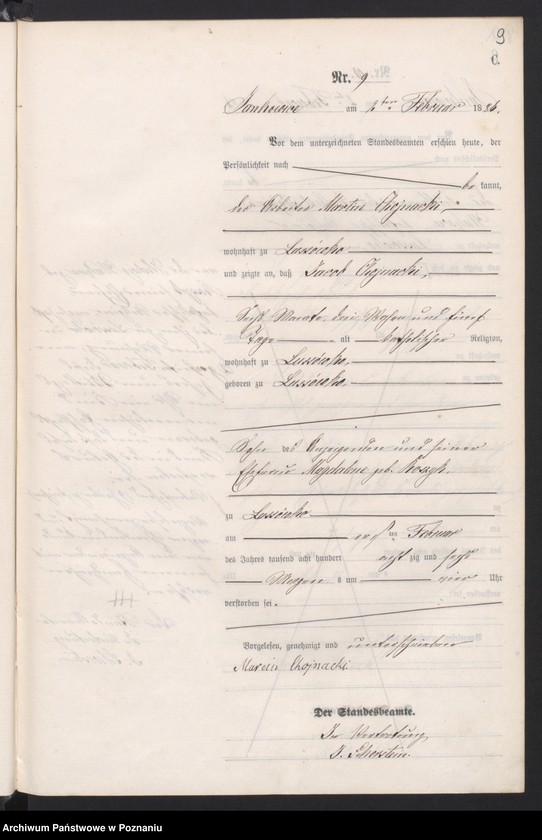 9
C.
Nr. 9
Sankowo am 2ten Februar 1886.
Vor dem unterzeichneten Standesbeamten erschien heute, der
Persönlichkeit nach
be kannt,
der Arbeiter Martin Chojnacki,
wohnhaft zu Lussówko
und zeigte an, daß Jacob Chojnacki,
sechs Monate drei Wochen und fünf
Tage alt katholischer Religion,
wohnhaft zu Lussówko
geboren zu Lussówko
Sohn des Anzeigenden und seiner
Ehefrau Magdalene geb.
zu Lussówko
am ersten Februar
des Jahres tausend acht hundert acht zig und sechs
Morgens um vier Uhr
verstorben sei.
Vorgelesen, genehmigt und unterschrieben
Marcin Chojnacki
Der Standesbeamte.
In Vertretung
Archiwum Państwowe w Poznaniu